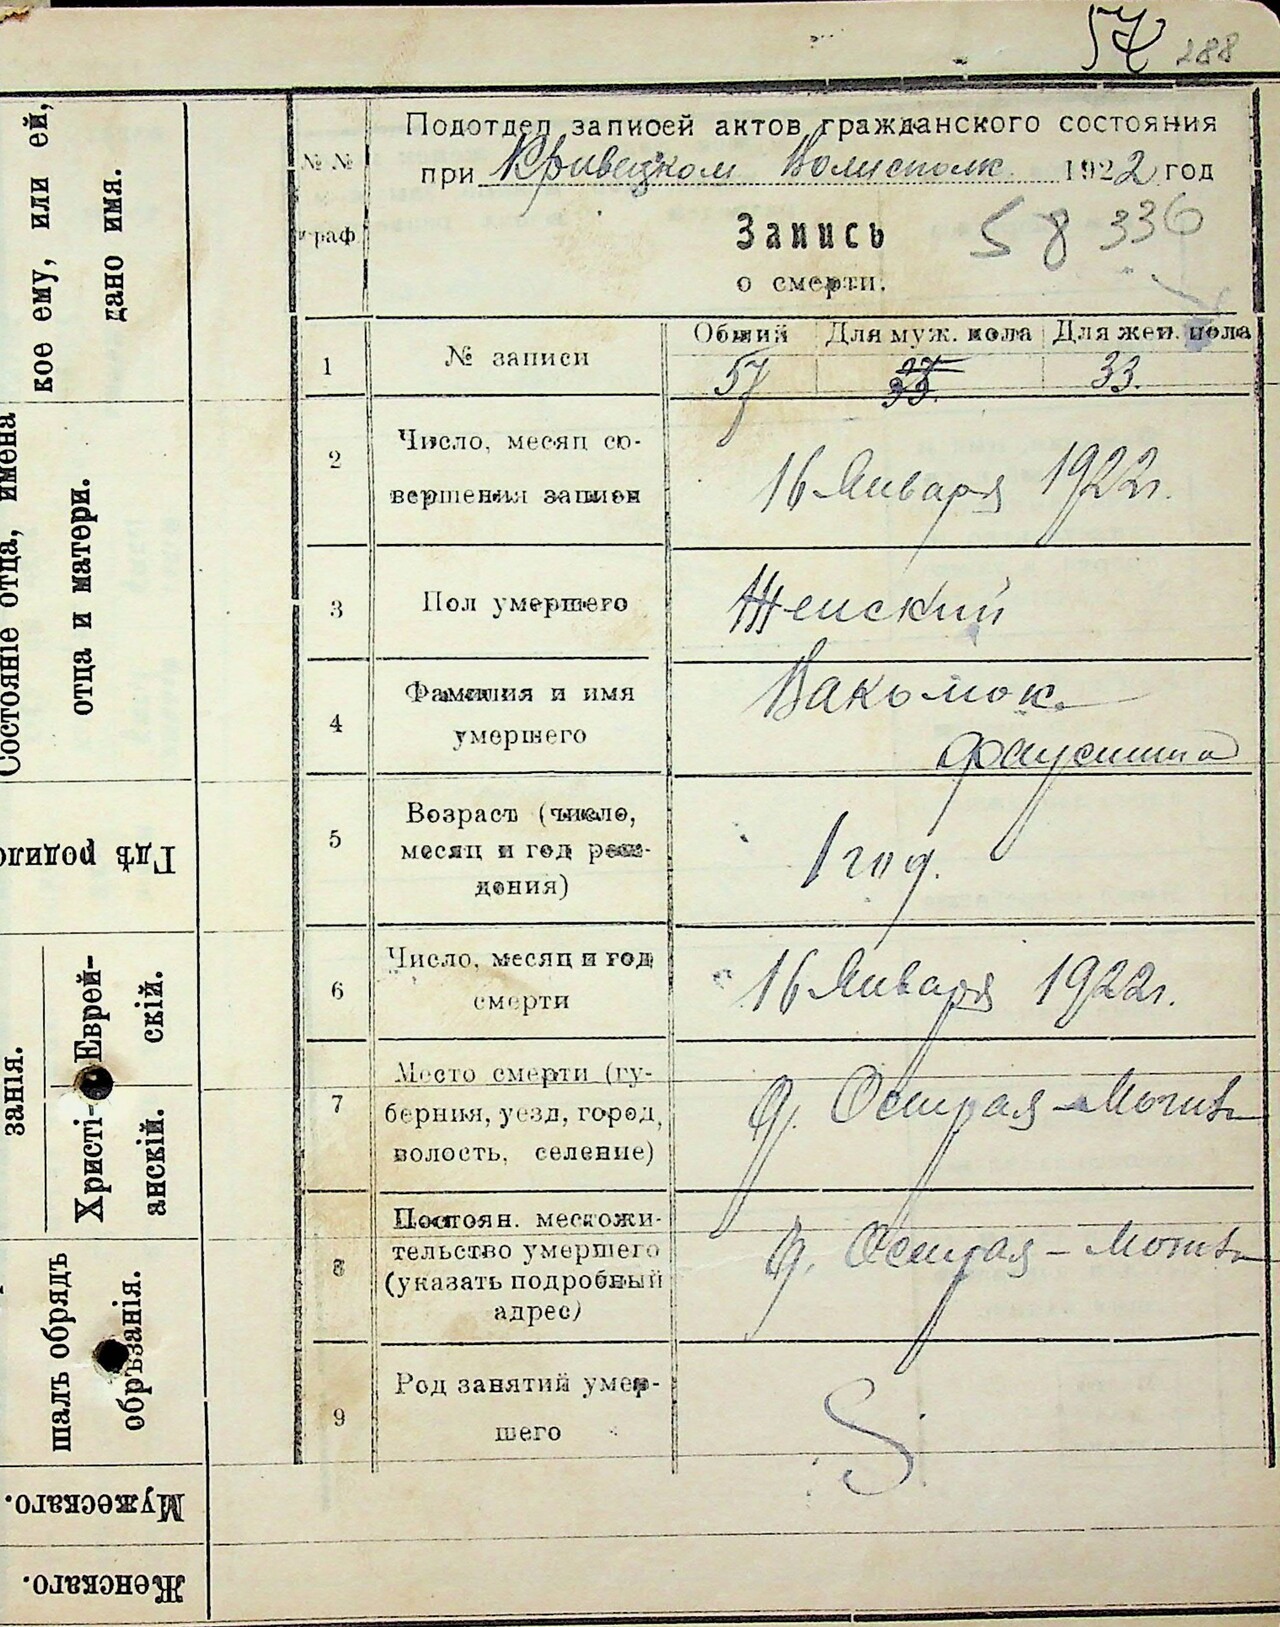 57 288
Подотдел записей актов гражданского состояния
при Кривецком Волисполк. 1922 год
Запись
58 336
о смерти.
№ № граф
Общий Для муж. пола Для жен. пола
1 № записи 57 33.
2 Число, месяц со-
вершения записи 16 Января 1922 г.
3 Пол умершего Женский
4 Фамилия и имя
умершего
5 Возраст (число,
месяц и год рож-
дения) 1 год.
6 Число, месяц и год
смерти 16 Января 1922 г.
7 Место смерти (гу-
берния, уезд, город,
волость, селение) д. Острая-Могила
8 Постоян. местожи-
тельство умершего
(указать подробный
адрес) д. Острая-Могила
9 Род занятий умер-
шего
кое ему, или ей,
дано имя.
Состоянiе отца, имена
отца и матери.
Гдѣ родилс
занiя.
Христi-
анскiй.
Еврей-
скiй.
шалъ обрядъ
обрѣзанiя.
Мужескаго.
Женскаго.